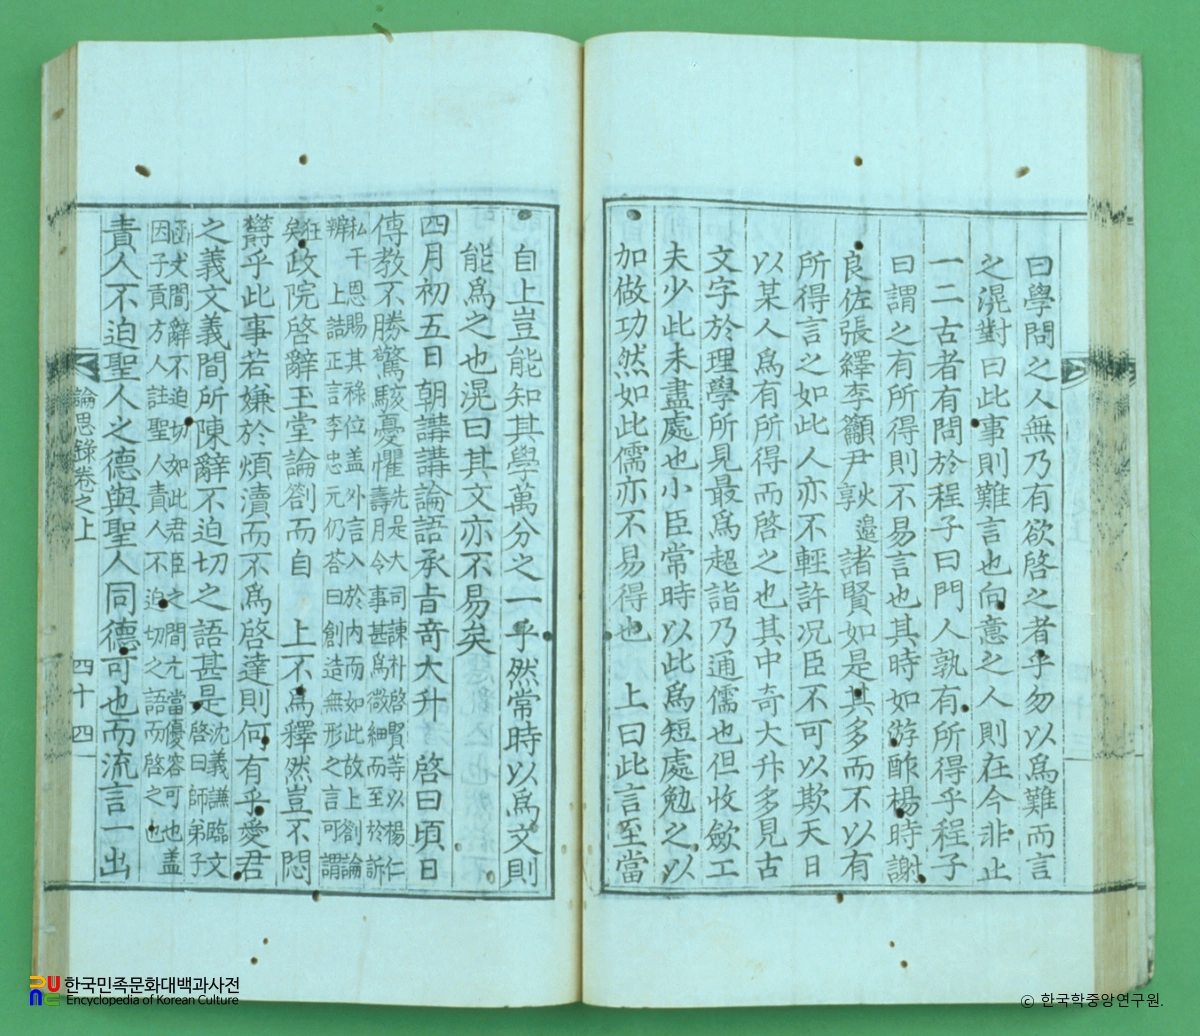 曰學問之人無乃有欲啓之者乎勿以爲難而言
之滉對曰此事則難言也向意之人則在今非止
一二古者有問於程子曰門人孰有所得乎程子
曰謂之有所得則不易言也其時如游酢楊時謝
良佐張繹李籲尹焞邉諸賢如是其多而不以有
所得言之如此人亦不輕許况臣不可以欺天日
以某人爲有所得而啓之也其中奇大升多見古
文字於理學所見最爲超詣乃通儒也但收斂工
夫少此未盡處也小臣常時以此爲短處勉之以
加做功然如此儒亦不易得也 上曰此言至當
自上豈能知其學萬分之一乎然常時以爲文則
能爲之也滉曰其文亦不易矣
四月初五日朝講講論語承旨奇大升 啓曰頃日
傳教不勝驚駭憂懼先是大司諫朴啓賢等以楊仁
壽月令事甚爲微細而至於訴
私干恩賜其祿位盖外言入於內而如此故上劄論
辨 上詰正言李忠元仍答曰創造無形之言可謂
狂
矣政院啓辭玉堂論劄而自 上不爲釋然豈不悶
欝乎此事若嫌於煩瀆而不爲啓達則何有乎愛君
之義文義間所陳辭不迫切之語甚是沈義謙臨文
啓曰師弟子
函丈間辭不迫切如此君臣之間尤當優容可也盖
因子貢方人註聖人責人不迫切之語而啓之也
責人不迫聖人之德與聖人同德可也而流言一出
論思錄卷之上
四十四
한국민족문화대백과사전
Encyclopedia of Korean Culture
© 한국학중앙연구원.